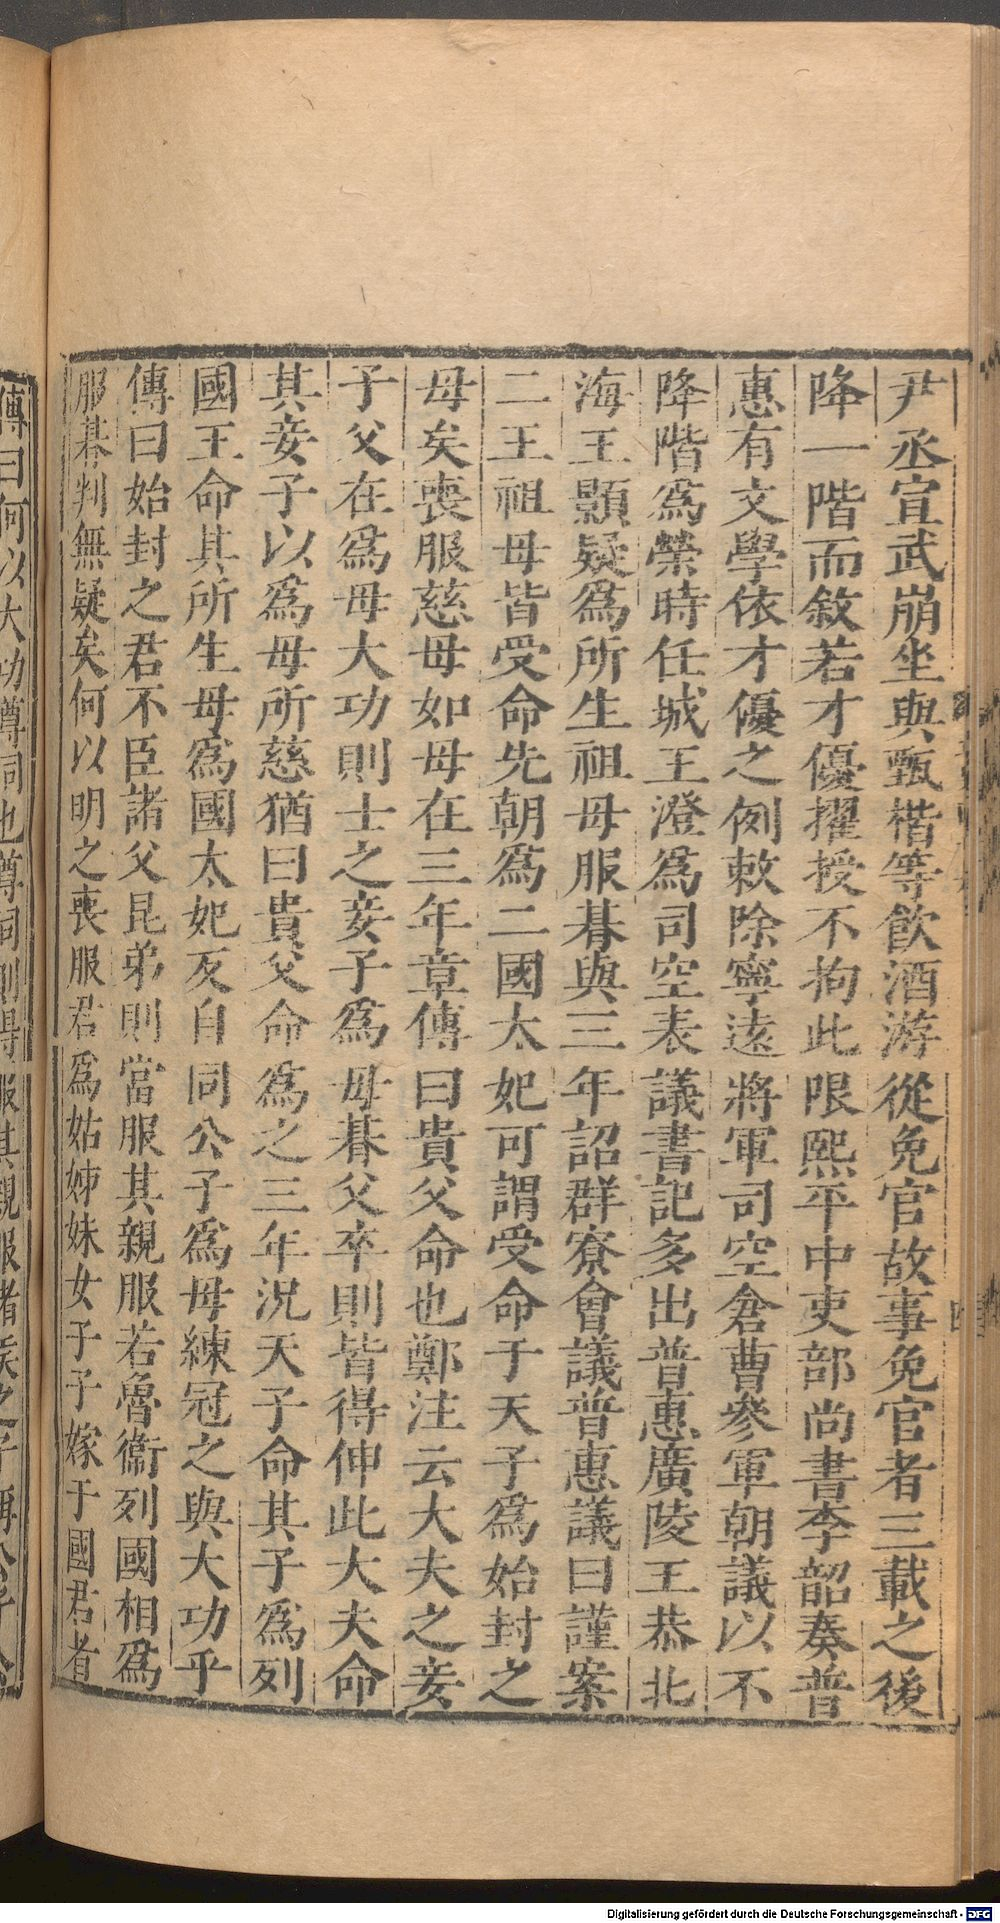 尹丞宣武崩坐與甄楷等飲酒游從免官故事免官者三載之後
降一階而敘若才優擢授不拘此限熙平中吏部尚書李韶奏普
惠有文學依才優之例敕除寧遠將軍司空倉曹參軍朝議以不
降階爲榮時任城王澄爲司空表議書記多出普惠廣陵王恭北
海王顥疑爲所生祖母服朞與三年詔群寮會議普惠議曰謹案
二王祖母皆受命先朝爲二國太妃可謂受命于天子爲始封之
母矣喪服慈母如母在三年章傳曰貴父命也鄭注云大夫之妾
子父在爲母大功則士之妾子爲母朞父卒則皆得伸此大夫命
其妾子以爲母所慈猶曰貴父命爲之三年況天子命其子爲列
國王命其所生母爲國太妃反自同公子爲母練冠之與大功乎
傳曰始封之君不臣諸父昆弟則當服其親服若魯衞列國相爲
服朞判無疑矣何以明之喪服君爲姑姊妹女子子嫁于國君者
傳曰何以大功尊同也尊同則得服其親服諸侯之子稱公子公
Digitalisierung gefördert durch die Deutsche Forschungsgemeinschaft - DFG